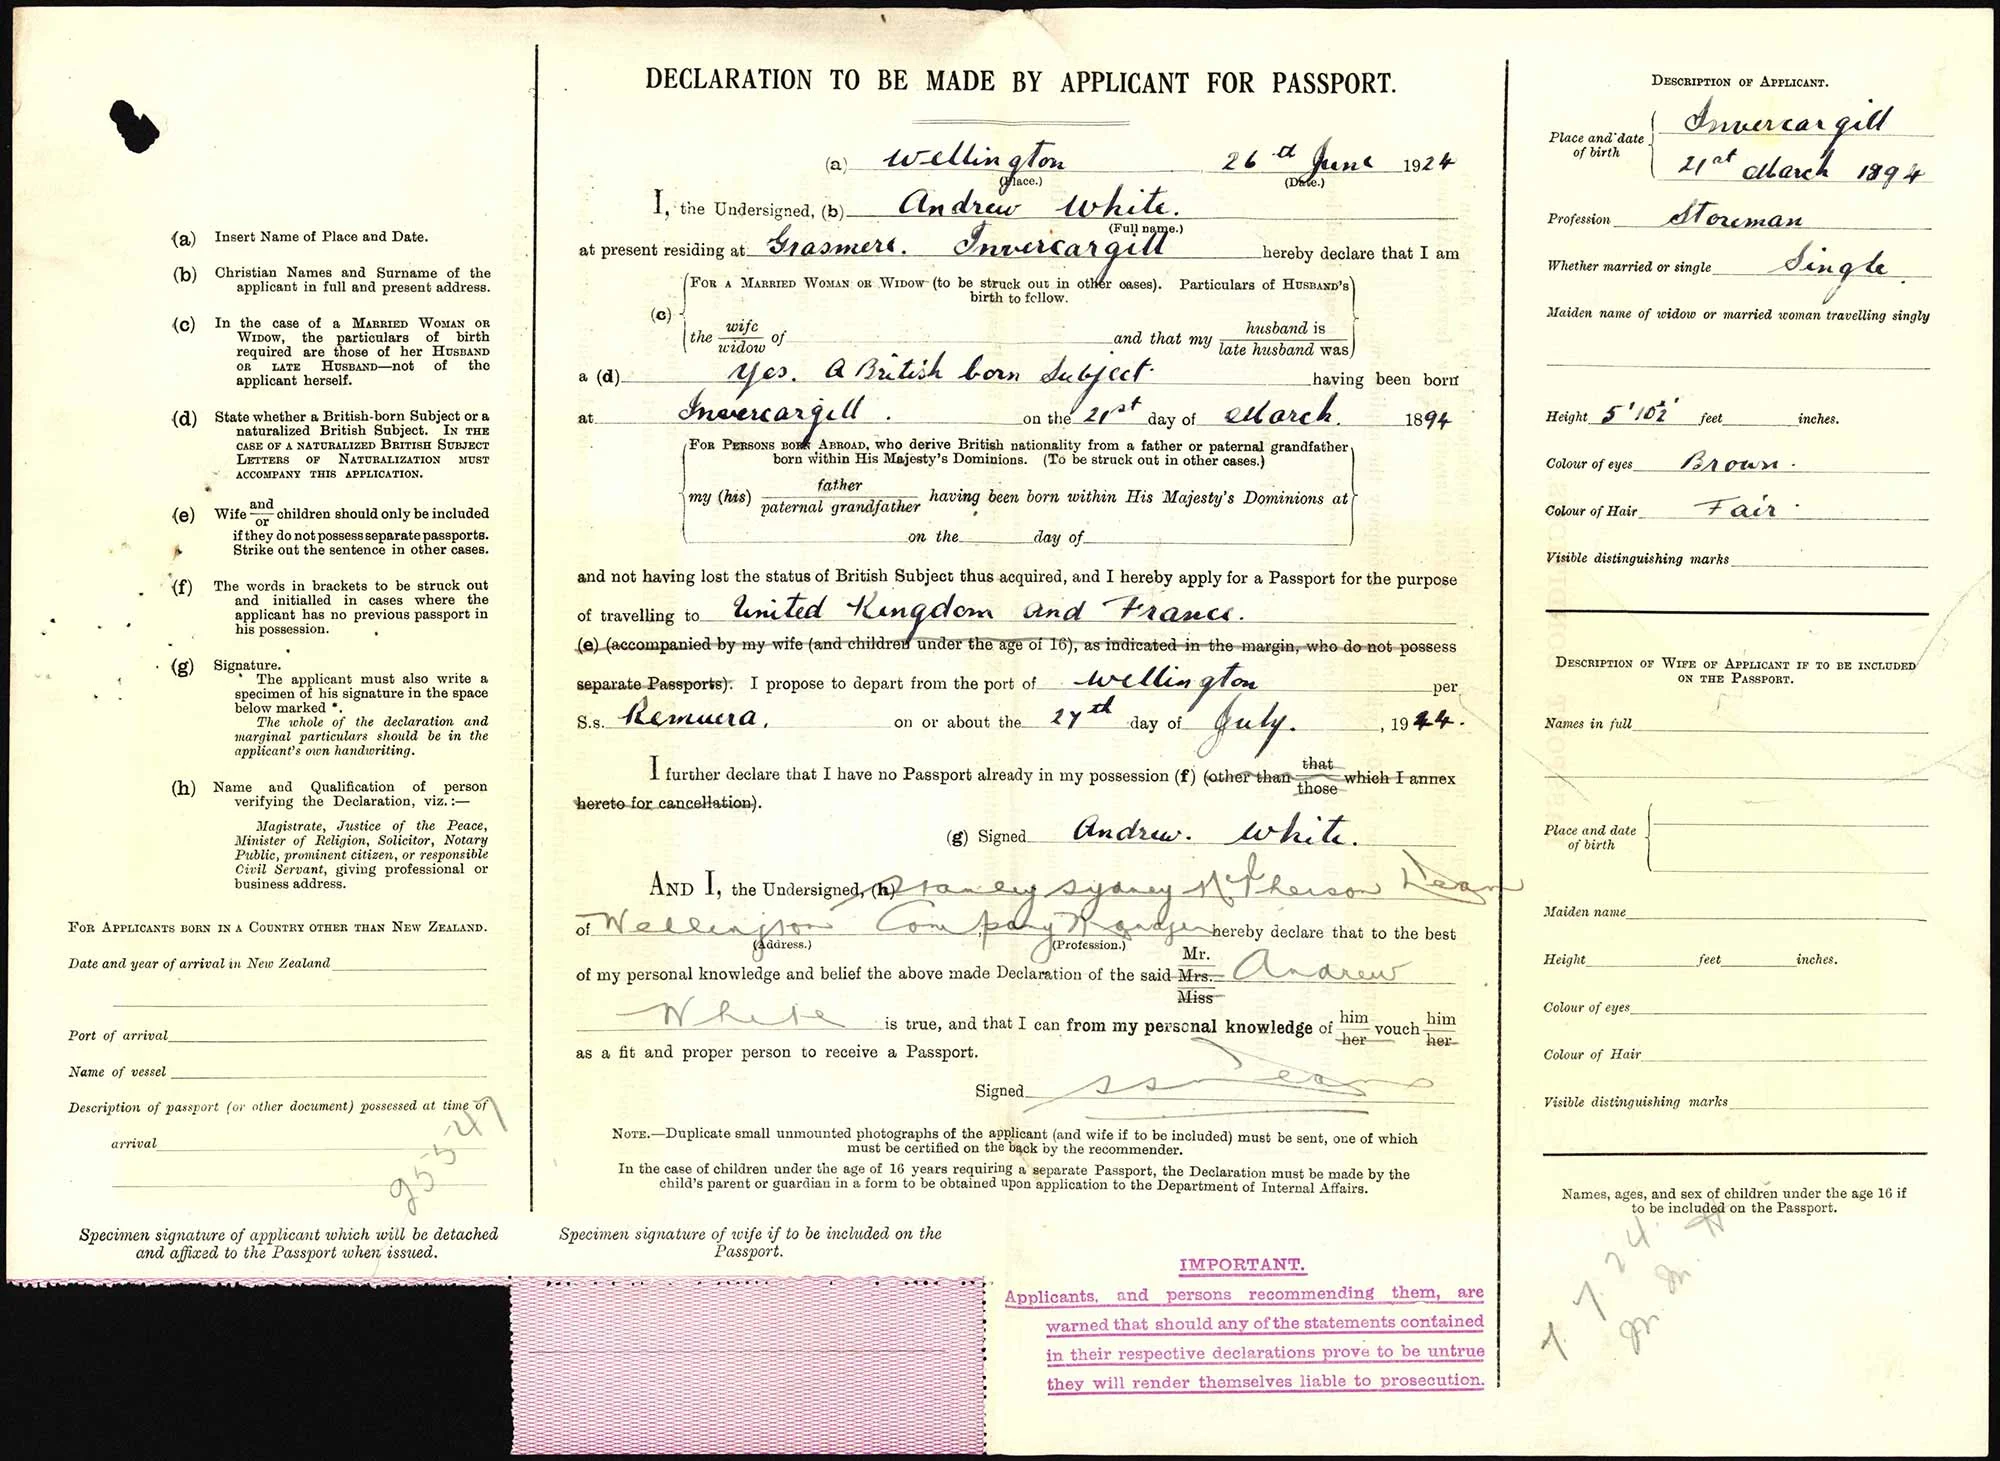 DECLARATION TO BE MADE BY APPLICANT FOR PASSPORT.
(a) Wellington 26th June 1924
(Place.) (Date.)
I, the Undersigned, (b) Andrew White.
(Full name.)
at present residing at Grasmere. Invercargill hereby declare that I am
(c) FOR A MARRIED WOMAN OR WIDOW (to be struck out in other cases). Particulars of HUSBAND'S
birth to follow.
the wife of and that my husband is
widow late husband was
a (d) Yes. A British born Subject. having been born
at Invercargill. on the 21st day of March. 1894
FOR PERSONS BORN ABROAD, who derive British nationality from a father or paternal grandfather
born within His Majesty's Dominions. (To be struck out in other cases.)
my (his) father having been born within His Majesty's Dominions at
paternal grandfather
on the day of
and not having lost the status of British Subject thus acquired, and I hereby apply for a Passport for the purpose
of travelling to United Kingdom and France.
(e) (accompanied by my wife (and children under the age of 16), as indicated in the margin, who do not possess
separate Passports). I propose to depart from the port of Wellington per
S.s. Remuera. on or about the 27th day of July. , 1924.
I further declare that I have no Passport already in my possession (f) (other than that which I annex
those
hereto for cancellation).
(g) Signed Andrew. White.
AND I, the Undersigned, (h) Stanley Sydney McPherson Dean
of Wellington Company Manager hereby declare that to the best
(Address.) (Profession.)
of my personal knowledge and belief the above made Declaration of the said Mr. Andrew
Mrs.
Miss
White is true, and that I can from my personal knowledge of him vouch him
her her
as a fit and proper person to receive a Passport.
Signed SSM Dean
NOTE.—Duplicate small unmounted photographs of the applicant (and wife if to be included) must be sent, one of which
must be certified on the back by the recommender.
In the case of children under the age of 16 years requiring a separate Passport, the Declaration must be made by the
child's parent or guardian in a form to be obtained upon application to the Department of Internal Affairs.
Specimen signature of wife if to be included on the
Passport.
IMPORTANT.
Applicants, and persons recommending them, are
warned that should any of the statements contained
in their respective declarations prove to be untrue
they will render themselves liable to prosecution.
(a) Insert Name of Place and Date.
(b) Christian Names and Surname of the
applicant in full and present address.
(c) In the case of a MARRIED WOMAN OR
WIDOW, the particulars of birth
required are those of her HUSBAND
OR LATE HUSBAND—not of the
applicant herself.
(d) State whether a British-born Subject or a
naturalized British Subject. IN THE
CASE OF A NATURALIZED BRITISH SUBJECT
LETTERS OF NATURALIZATION MUST
ACCOMPANY THIS APPLICATION.
(e) Wife and children should only be included
or
if they do not possess separate passports.
Strike out the sentence in other cases.
(f) The words in brackets to be struck out
and initialled in cases where the
applicant has no previous passport in
his possession.
(g) Signature.
The applicant must also write a
specimen of his signature in the space
below marked *.
The whole of the declaration and
marginal particulars should be in the
applicant's own handwriting.
(h) Name and Qualification of person
verifying the Declaration, viz.:—
Magistrate, Justice of the Peace,
Minister of Religion, Solicitor, Notary
Public, prominent citizen, or responsible
Civil Servant, giving professional or
business address.
FOR APPLICANTS BORN IN A COUNTRY OTHER THAN NEW ZEALAND.
Date and year of arrival in New Zealand
Port of arrival
Name of vessel
Description of passport (or other document) possessed at time of
arrival
25547
Specimen signature of applicant which will be detached
and affixed to the Passport when issued.
DESCRIPTION OF APPLICANT.
Place and date Invercargill
of birth 21st March 1894
Profession Storeman
Whether married or single Single
Maiden name of widow or married woman travelling singly
Height 5' 10½" feet inches.
Colour of eyes Brown.
Colour of Hair Fair.
Visible distinguishing marks
DESCRIPTION OF WIFE OF APPLICANT IF TO BE INCLUDED
ON THE PASSPORT.
Names in full
Place and date
of birth
Maiden name
Height feet inches.
Colour of eyes
Colour of Hair
Visible distinguishing marks
Names, ages, and sex of children under the age 16 if
to be included on the Passport.
1.7.24.